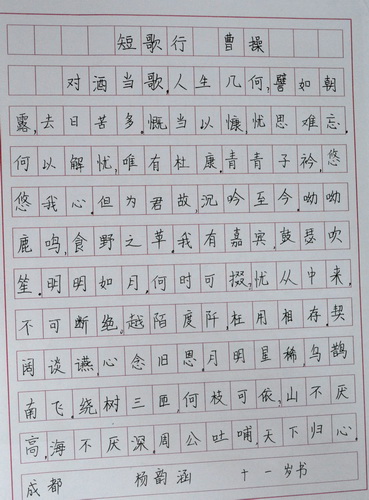 短歌行 曹操
对酒当歌,人生几何,譬如朝
露,去日苦多.慨当以慷,忧思难忘.
何以解忧,唯有杜康.青青子衿,悠
悠我心.但为君故,沉吟至今.呦呦
鹿鸣,食野之草.我有嘉宾,鼓瑟吹
笙.明明如月,何时可掇,忧从中来,
不可断绝.越陌度阡,枉用相存.契
阔谈讌,心念旧恩.月明星稀,乌鹊
南飞.绕树三匝,何枝可依,山不厌
高,海不厌深.周公吐哺,天下归心.
成都 杨韵涵 十一岁书